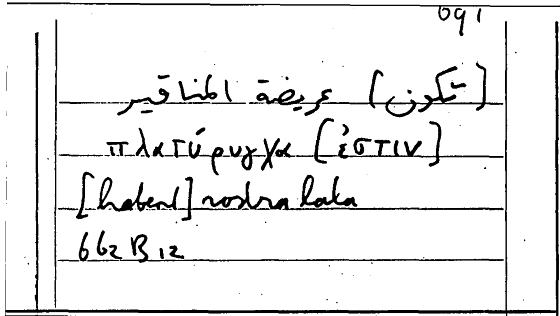 091
[تكون] عريضة المناقير
πλατύρυγχα [ἐστιν]
[habent] rostra lata
662 B 12